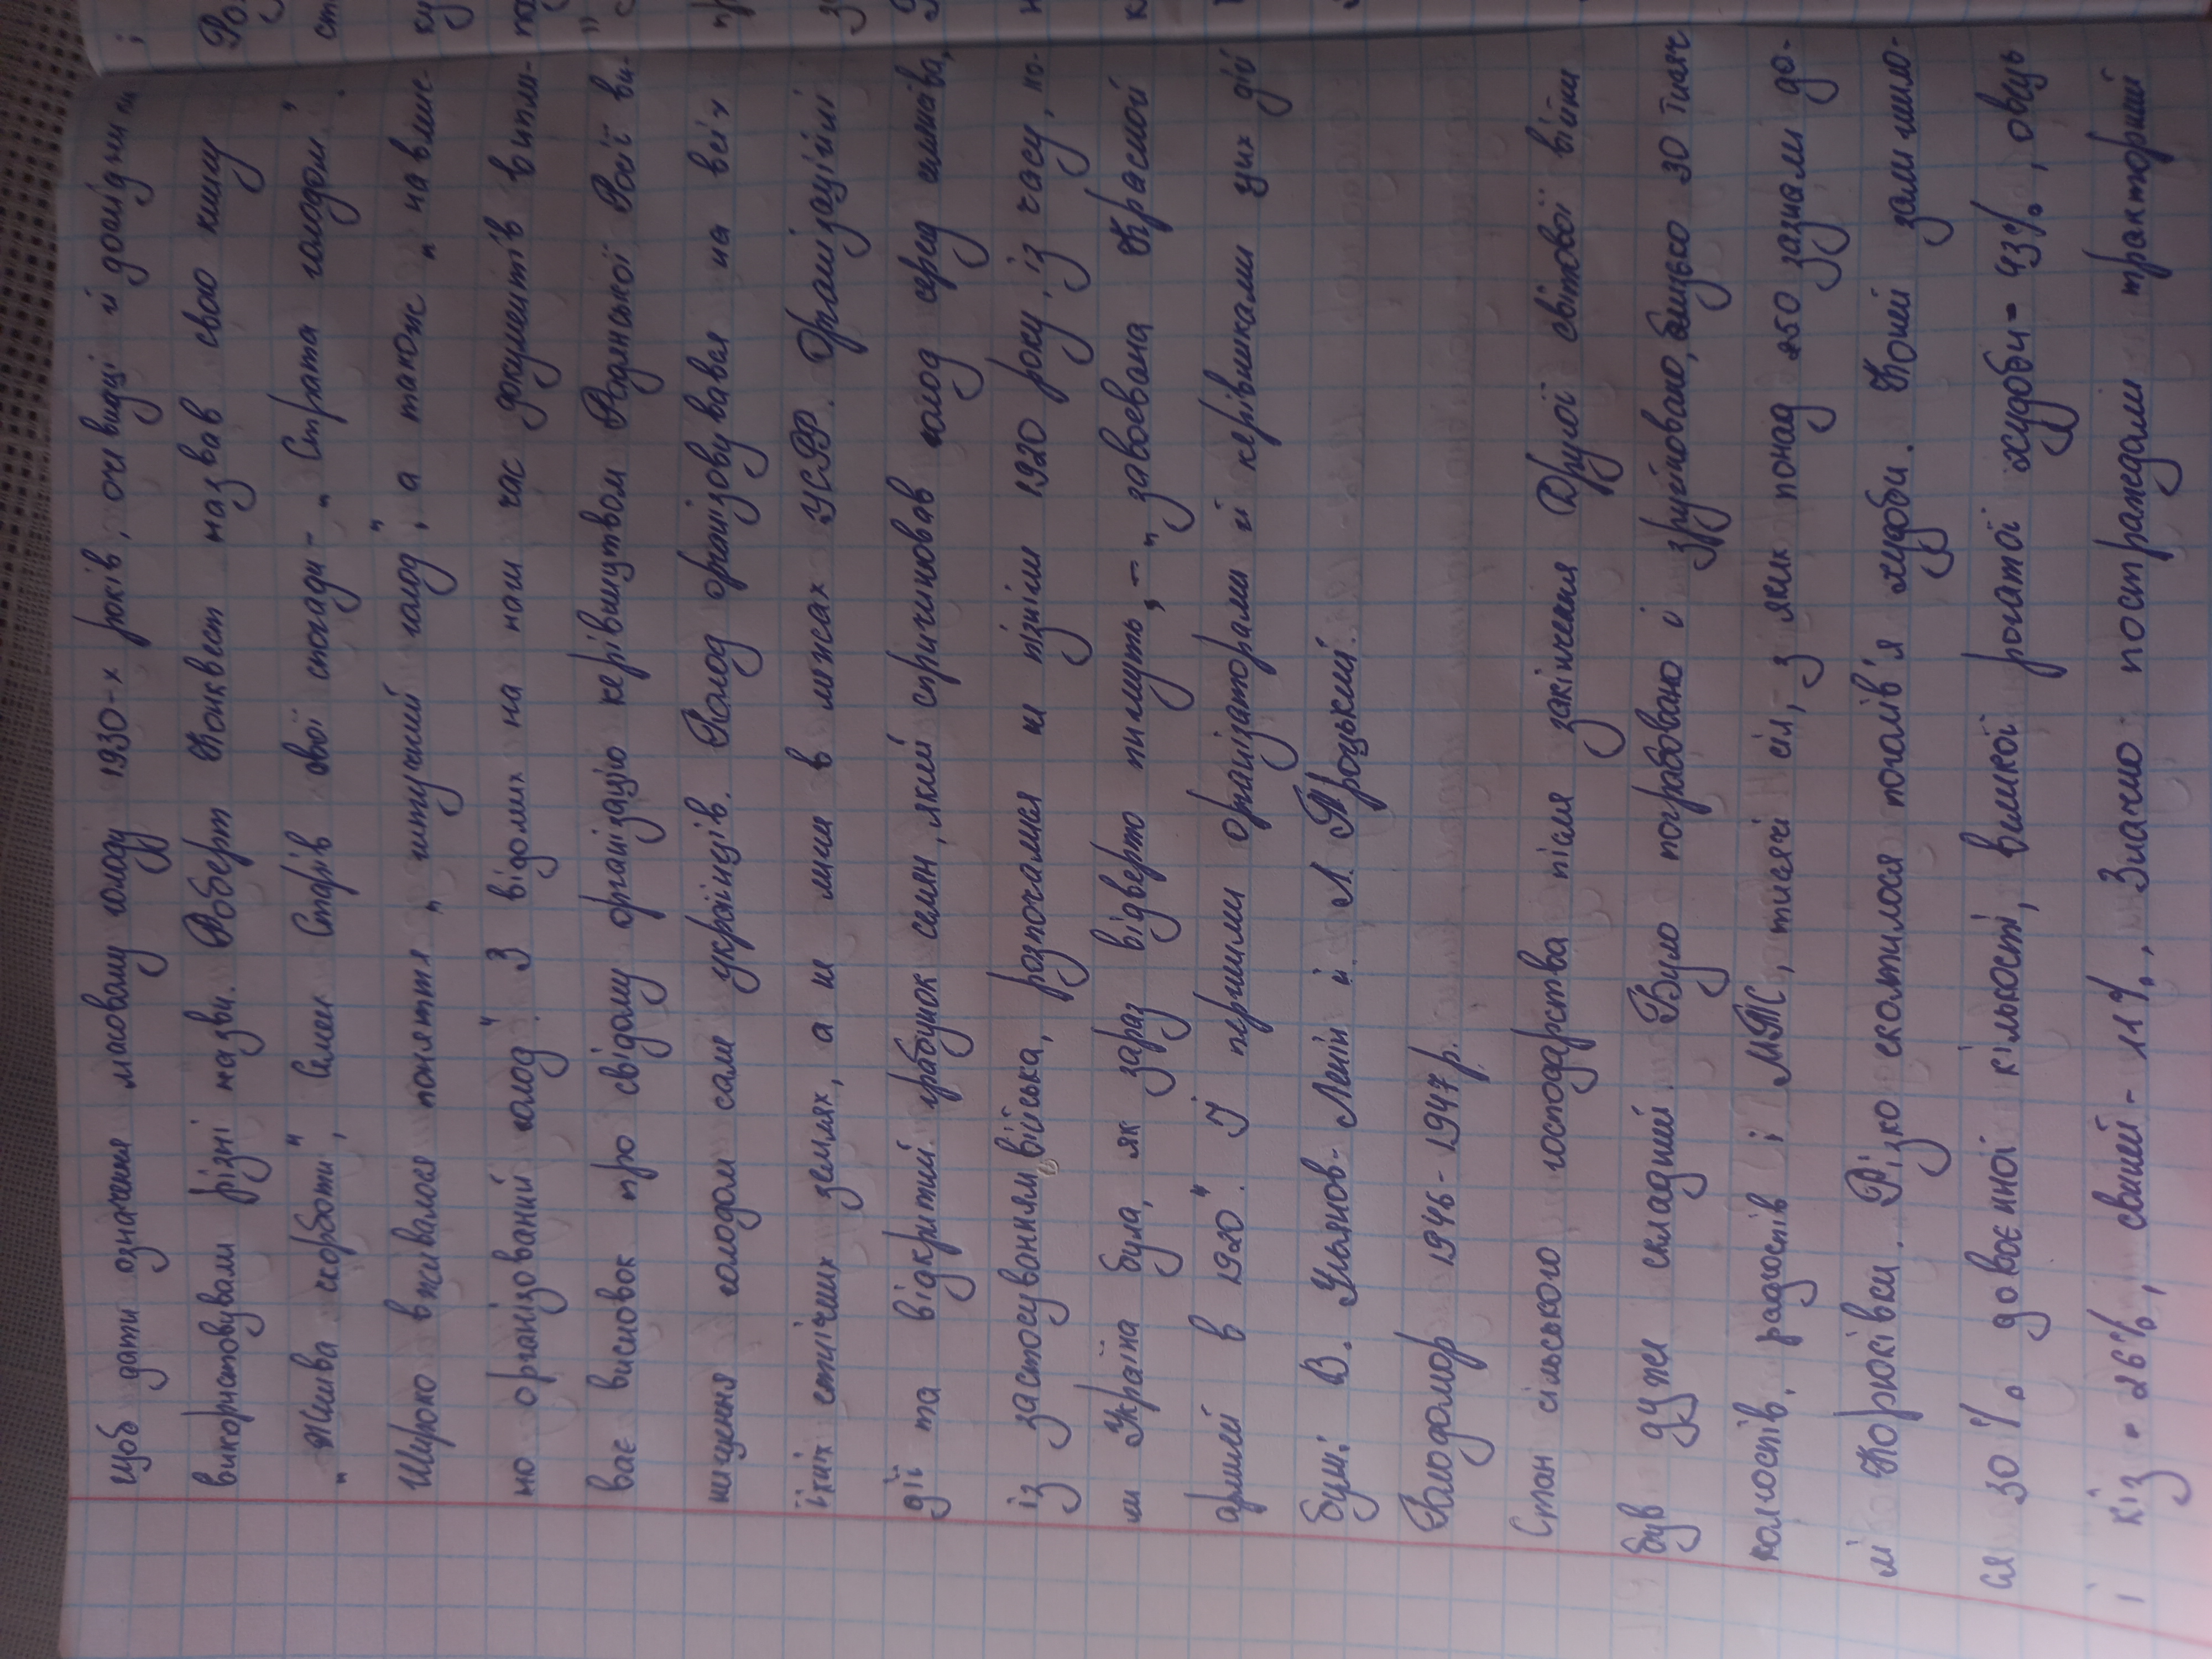 Щоб дати означення масовому голоду 1930-х років, очевидці й дослідники
використовували різні назви. Роберт Конквест назвав свою книгу
„Жнива скорботи", Семен Старів свої спогади - „Страта голодом".
Широко вживалося поняття „штучний голод", а також „навмис-
но організований голод". З відомих на наш час документів виплі-
ває висновок про свідому організацію керівництвом Радянської Росії ви-
нищення голодом саме українців. Голод організовувався на всіх
їхніх етнічних землях, а не лише в межах УСРР. Організаційні
дії та відкритий грабунок селян, який спричинював голод серед селянства,
із застосуванням війська, розпочалися не пізніш 1920 року, із часу, ко-
ли Україна була, як зараз відверто пишуть, - „завоевана Красной
армией в 1920". Її першими організаторами й керівниками цих дій
були В. Ульянов-Ленін й Л. Троцький.
Голодомор 1946-1947 р.
Стан сільського господарства після закінчення Другої світової війни
був дуже складний. Було пограбовано і зруйновано близько 30 тисяч
колгоспів, радгоспів і МТС, тисячі сіл, - з яких понад 250 зазнали до-
лі Корюківки. Різко скоктилося поголів'я худоби. Коней залишило-
ся 30% довоєнної кількості, великої рогатої худоби - 43%, овець
і кіз - 26%, свиней - 11%. Значно постраждали тракторний